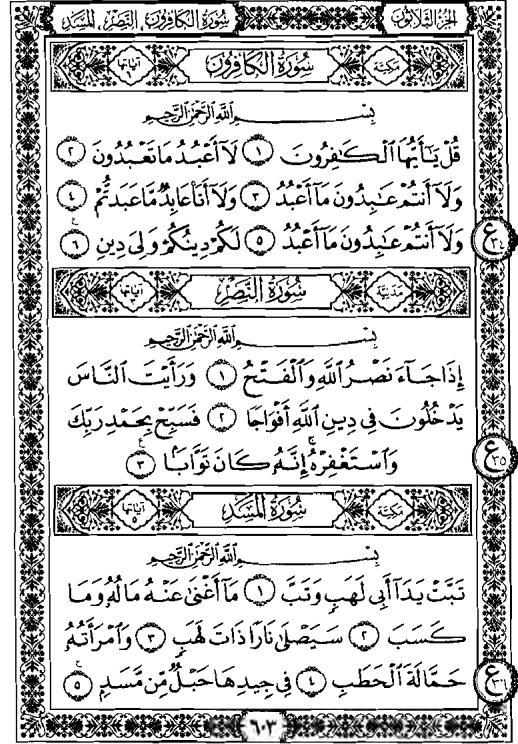 الجزء الثلاثون سورة الكافرون، النصر، المسد
مكية سورة الكافرون آياتها ٦
بِسْمِ ٱللَّهِ ٱلرَّحْمَٰنِ ٱلرَّحِيمِ
قُلْ يَٰٓأَيُّهَا ٱلْكَٰفِرُونَ ١ لَآ أَعْبُدُ مَا تَعْبُدُونَ ٢
وَلَآ أَنتُمْ عَٰبِدُونَ مَآ أَعْبُدُ ٣ وَلَآ أَنَا۠ عَابِدٌ مَّا عَبَدتُّمْ ٤
وَلَآ أَنتُمْ عَٰبِدُونَ مَآ أَعْبُدُ ٥ لَكُمْ دِينُكُمْ وَلِىَ دِينِ ٦
ع ٣٤
مدنية سورة النصر آياتها ٣
بِسْمِ ٱللَّهِ ٱلرَّحْمَٰنِ ٱلرَّحِيمِ
إِذَا جَآءَ نَصْرُ ٱللَّهِ وَٱلْفَتْحُ ١ وَرَأَيْتَ ٱلنَّاسَ
يَدْخُلُونَ فِى دِينِ ٱللَّهِ أَفْوَاجًا ٢ فَسَبِّحْ بِحَمْدِ رَبِّكَ
وَٱسْتَغْفِرْهُ ۚ إِنَّهُۥ كَانَ تَوَّابًۢا ٣
ع ٣٥
مكية سورة المسد آياتها ٥
بِسْمِ ٱللَّهِ ٱلرَّحْمَٰنِ ٱلرَّحِيمِ
تَبَّتْ يَدَآ أَبِى لَهَبٍ وَتَبَّ ١ مَآ أَغْنَىٰ عَنْهُ مَالُهُۥ وَمَا
كَسَبَ ٢ سَيَصْلَىٰ نَارًا ذَاتَ لَهَبٍ ٣ وَٱمْرَأَتُهُۥ
حَمَّالَةَ ٱلْحَطَبِ ٤ فِى جِيدِهَا حَبْلٌ مِّن مَّسَدٍۭ ٥
ع ٣٦
٦٠٣